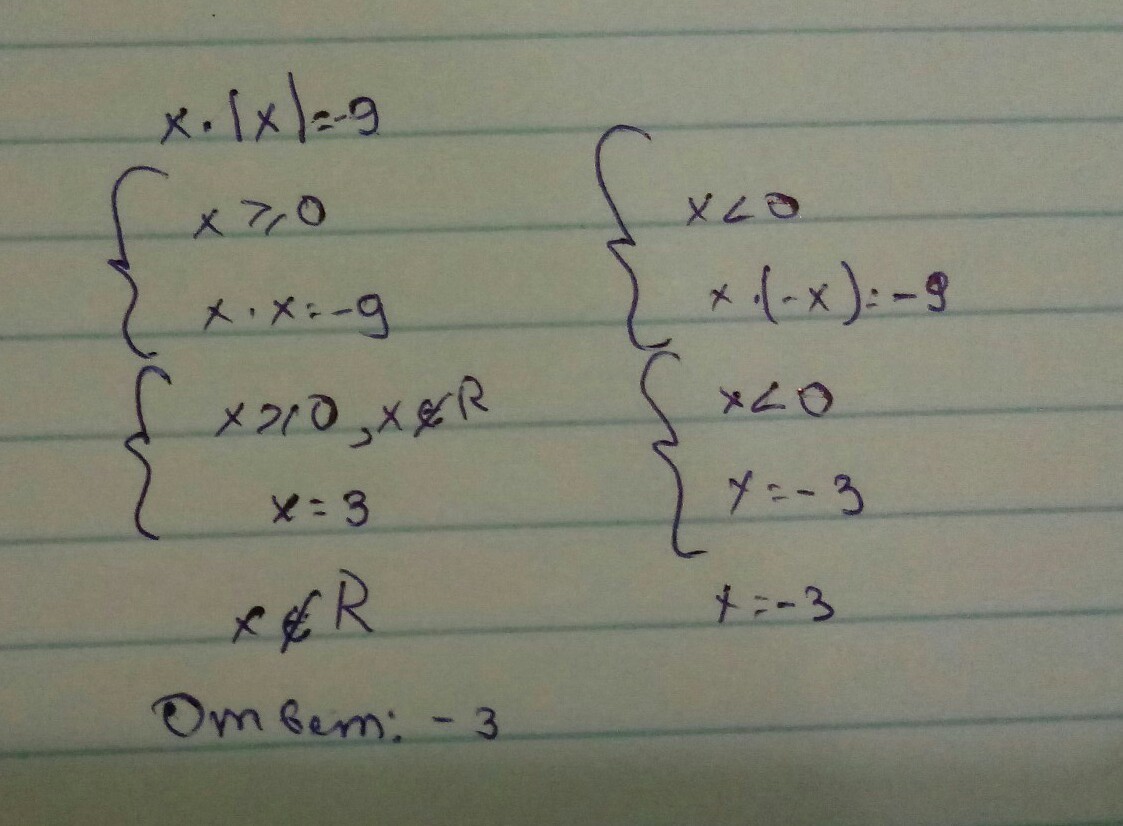 x·|x|=-9
x⩾0
x·x=-9
x⩾0, x∉R
x=3
x∉R
x<0
x·(-x)=-9
x<0
x=-3
x=-3
Ответ: -3